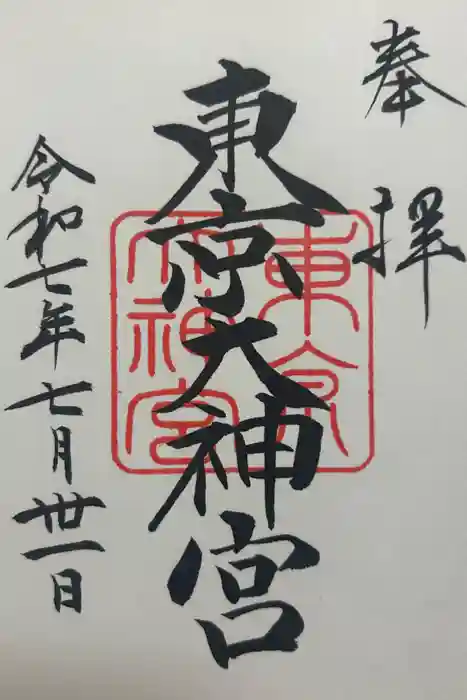 奉拝
東京大神宮
令和七年七月卅一日
東京大神宮